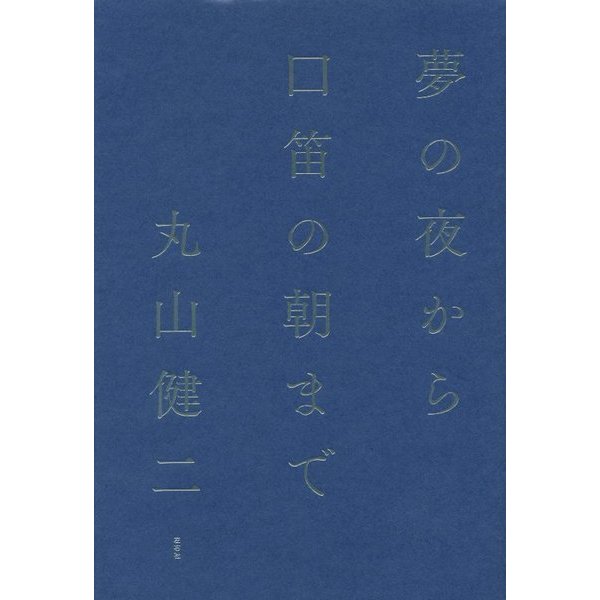 夢の夜から
口笛の朝まで
丸山健二